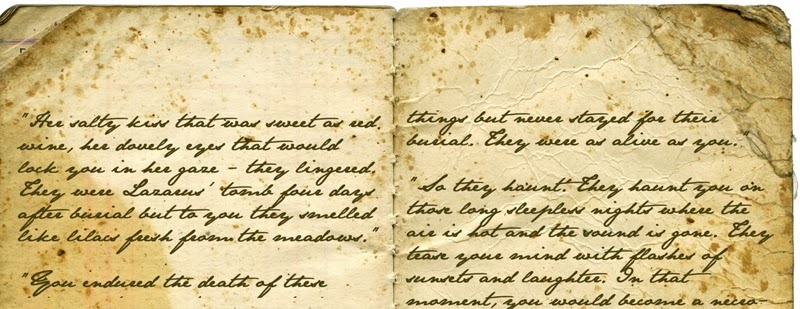 "Her salty kiss that was sweet as red
wine, her dovely eyes that would
lock you in her gaze – they lingered.
They were Lazarus' tomb four days
after burial but to you they smelled
like lilacs fresh from the meadows."
"You endured the death of these
things but never stayed for their
burial. They were as alive as you."
"So they haunt. They haunt you on
those long sleepless nights where the
air is hot and the sound is gone. They
tease your mind with flashes of
sunsets and laughter. In that
moment, you would become a necro-